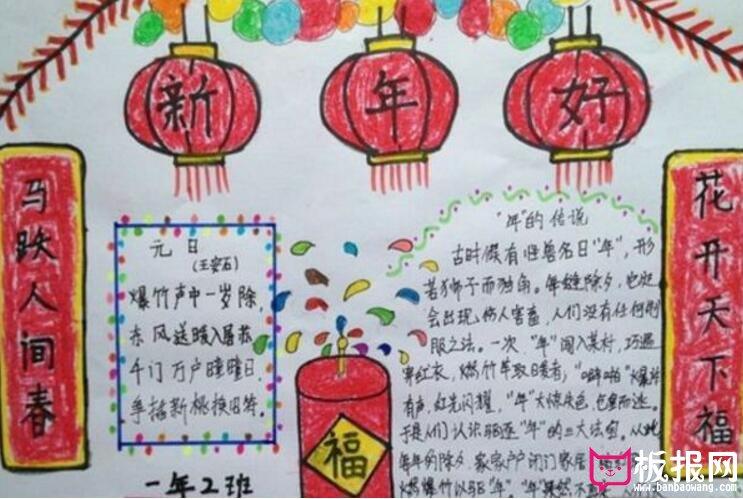 新年好
马跃人间春
元日
(王安石)
爆竹声中一岁除,
东风送暖入屠苏
千门万户瞳瞳日,
手插新桃换旧符。
一年2班
福
"年"的传说
古时候有怪兽名曰"年",形
若狮子而独角。每逢除夕,它
会出现,伤人害畜,人们没有任何制
服之法。一次,"年"闯入某村,巧遇
穿红衣,燃竹竿取暖者,"噼啪"爆炸
有声,红光闪耀,"年"大惊失色,仓皇而逃。
于是人们认识驱逐"年"的三大法宝。从此
每年的除夕,家家户户闭门家居
燃爆竹以驱"年","年"果然不
花开天下福
板报网
www.banbaowang.com